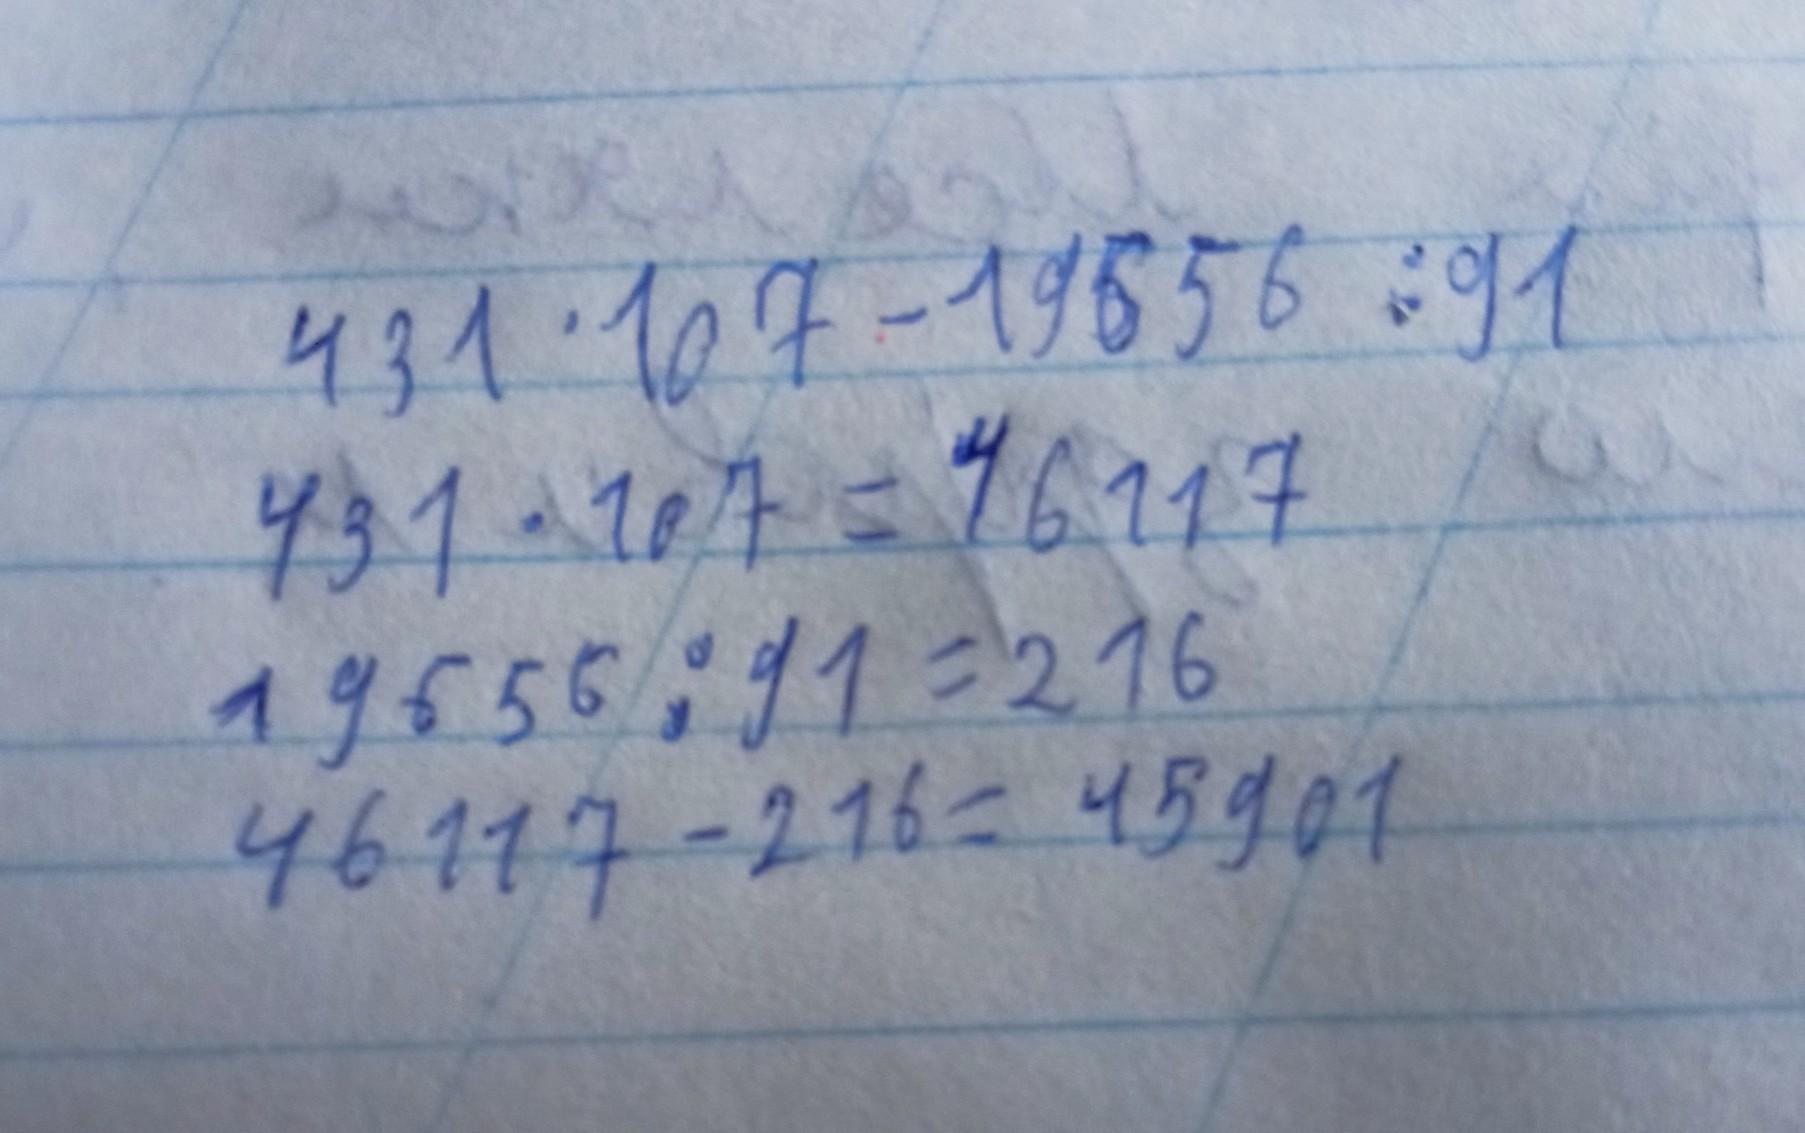 431 · 107 - 19656 : 91
431 · 107 = 46117
19656 : 91 = 216
46117 - 216 = 45901